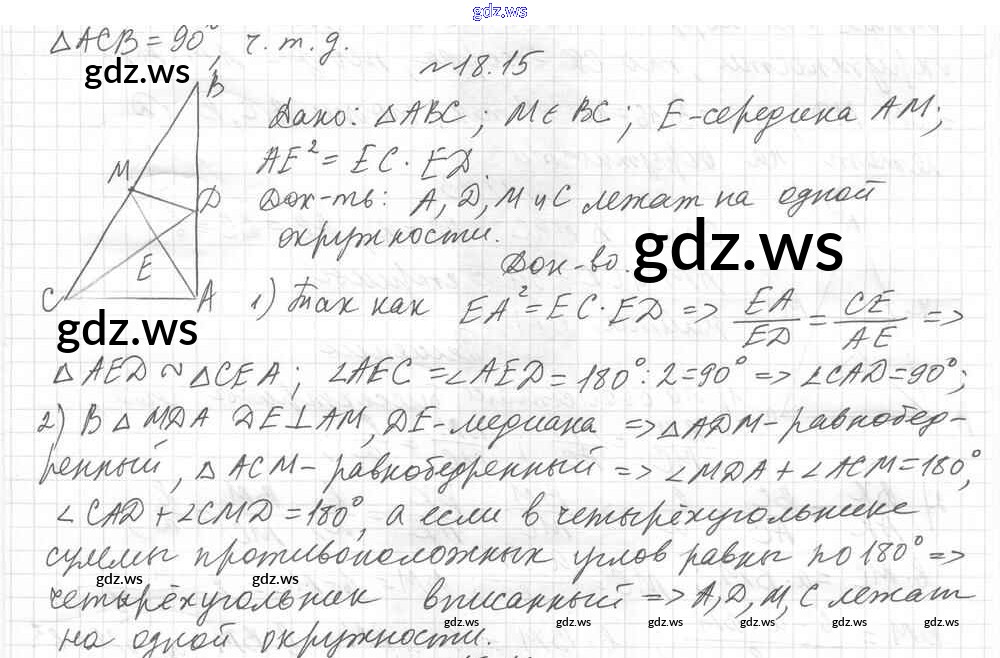 gdz.ws
△ACB = 90° ч.т.д.
gdz.ws
№18.15
B
Дано: △ABC; M∈BC; E-середина AM;
M
AE² = EC · ED.
D
Док-ть: A, D, M и C лежат на одной
окружности.
gdz.ws
Док-во.
E
C
A
1) Так как EA² = EC · ED => EA/ED = CE/AE =>
gdz.ws
△AED ~ △CEA; ∠AEC = ∠AED = 180° : 2 = 90° => ∠CAD = 90°;
2) В △MDA DE⊥AM, DE-медиана => △ADM-равнобед-
ренный, △ACM-равнобедренный => ∠MDA + ∠ACM = 180°,
∠CAD + ∠CMD = 180°, а если в четырёхугольнике
суммы противоположных углов равны по 180° =>
gdz.ws gdz.ws gdz.ws
четырёхугольник вписанный => A, D, M, C лежат
gdz.ws gdz.ws gdz.ws gdz.ws
на одной окружности.